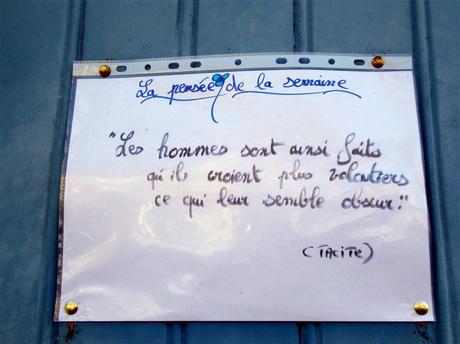 La pensée de la semaine
"Les hommes sont ainsi faits
qu'ils croient plus volontiers
ce qui leur semble obscur."
(TACITE)